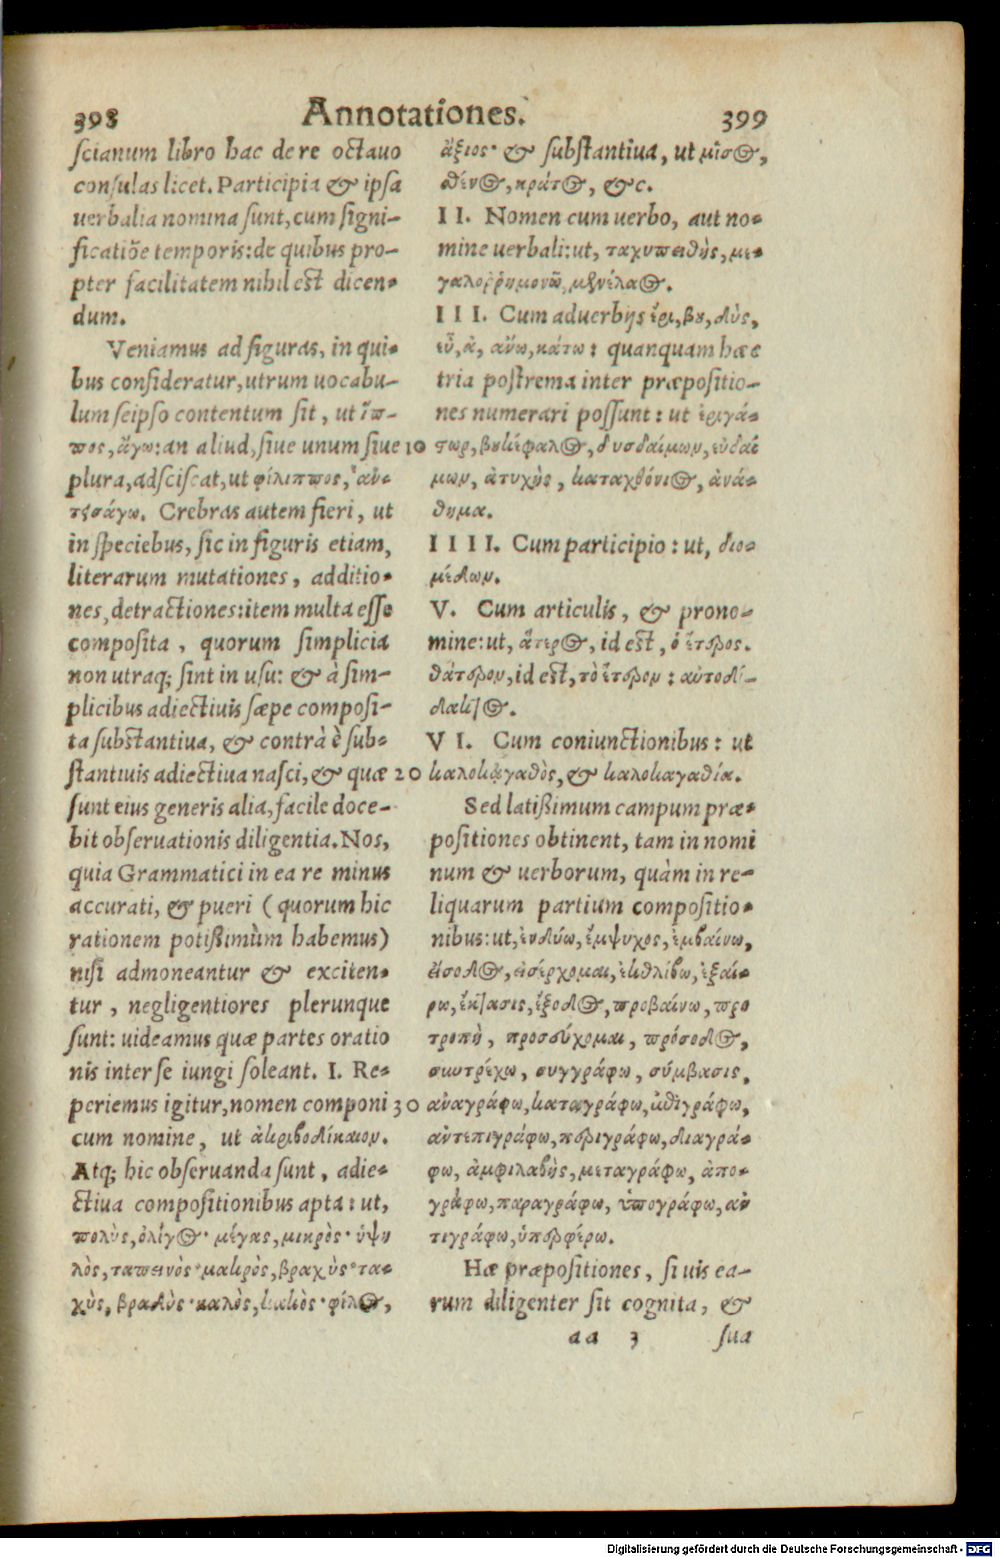 398 Annotationes. 399
scianum libro hac de re octauo
consulas licet. Participia & ipsa
uerbalia nomina sunt, cum signi-
ficatiōe temporis: de quibus pro-
pter facilitatem nihil est dicen-
dum.
Veniamus ad figuras, in qui-
bus consideratur, utrum uocabu-
lum seipso contentum sit, ut ἵπ-
πος, ἄγω: an aliud, siue unum siue 10
plura, adsciscat, ut φίλιππος, ἀν-
τεισάγω. Crebras autem fieri, ut
in speciebus, sic in figuris etiam,
literarum mutationes, additio-
nes, detractiones: item multa esse
composita, quorum simplicia
non utraq; sint in usu: & à sim-
plicibus adiectiuis sæpe composi-
ta substantiua, & contrà è sub-
stantiuis adiectiua nasci, & quæ 20
sunt eius generis alia, facile doce-
bit obseruationis diligentia. Nos,
quia Grammatici in ea re minus
accurati, & pueri (quorum hic
rationem potißimùm habemus)
nisi admoneantur & exciten-
tur, negligentiores plerunque
sunt: uideamus quæ partes oratio
nis inter se iungi soleant. I. Re-
periemus igitur, nomen componi 30
cum nomine, ut ἀκριβοδίκαιον.
Atq; hic obseruanda sunt, adie-
ctiua compositionibus apta: ut,
πολὺς, ὀλίγος· μέγας, μικρὸς· ὑψη
λὸς, ταπεινὸς· μακρὸς, βραχὺς· τα-
χὺς, βραδὺς· καλὸς, κακὸς· φίλος,
ἄξιος· & substantiua, ut μῖσος,
θένος, κράτος, &c.
II. Nomen cum uerbo, aut no-
mine uerbali: ut, ταχυπειθὴς, με-
γαλοῤῥημονῶ, μενέλαος.
III. Cum aduerbijs ἔρι, βου, δὺς,
εὖ, ἀ, ἄνω, κάτω: quanquam hæc
tria postrema inter præpositio-
nes numerari possunt: ut ἐριγά-
τωρ, βουκέφαλος, δυσδαίμων, εὐδαί
μων, ἀτυχὴς, καταχθόνιος, ἀνά-
θημα.
IIII. Cum participio: ut, διο-
μέδων.
V. Cum articulis, & prono-
mine: ut, ἅτερος, id est, ὁ ἕτερος.
θάτερον, id est, τὸ ἕτερον: αὐτοδί-
δακτος.
VI. Cum coniunctionibus: ut
καλοκἀγαθὸς, & καλοκαγαθία.
Sed latißimum campum præ-
positiones obtinent, tam in nomi
num & uerborum, quàm in re-
liquarum partium compositio-
nibus: ut, ἐνδύω, ἔμψυχος, ἐμβαίνω,
εἴσοδος, εἰσέρχομαι, ἐκθλίβω, ἐξαί-
ρω, ἔκτασις, ἔξοδος, προβαίνω, προ
τροπὴ, προσεύχομαι, πρόσοδος,
συντρέχω, συγγράφω, σύμβασις,
ἀναγράφω, καταγράφω, ἐπιγράφω,
ἀντεπιγράφω, περιγράφω, διαγρά-
φω, ἀμφιλαβὴς, μεταγράφω, ἀπο-
γράφω, παραγράφω, ὑπογράφω, ἀν
τιγράφω, ὑπερφέρω.
Hæ præpositiones, si uis ea-
rum diligenter sit cognita, &
aa 3 sua
Digitalisierung gefördert durch die Deutsche Forschungsgemeinschaft - DFG